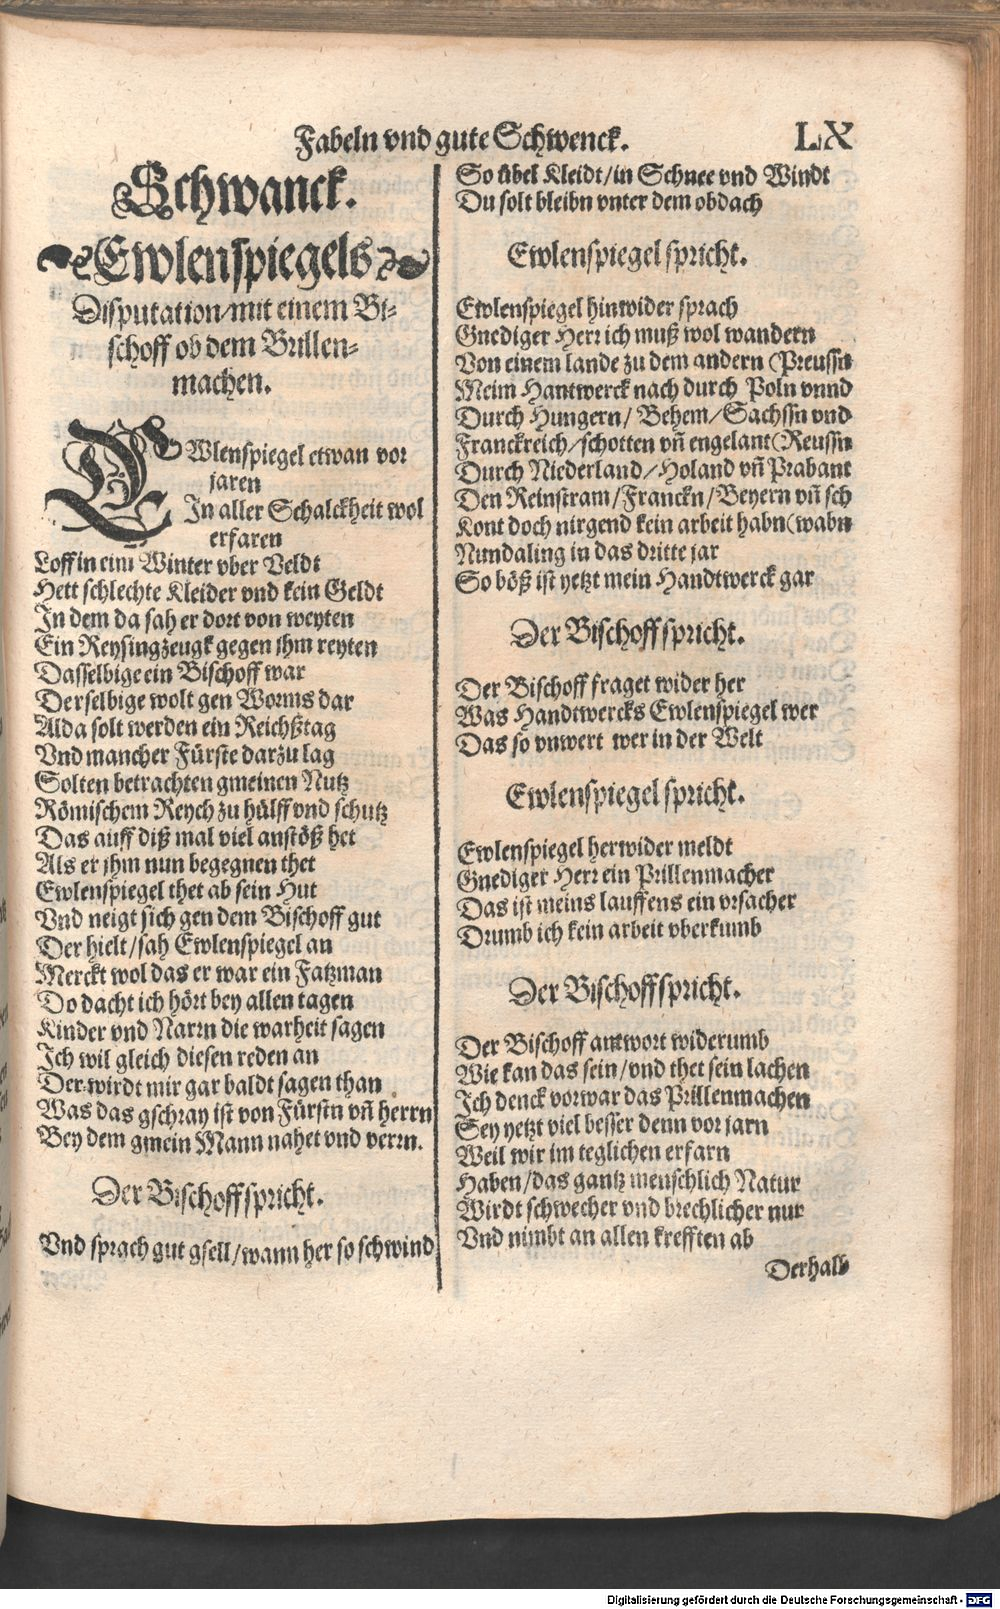 Fabeln vnd gute Schwenck. LX
Schwanck.
Ewlenspiegels
Disputation/mit einem Bi-
schoff ob dem Brillen-
machen.
EWlenspiegel etwan vor
jaren
In aller Schalckheit wol
erfaren
Loff in eim Winter vber Veldt
Hett schlechte Kleider vnd kein Geldt
In dem da sah er dort von weyten
Ein Reysingzeugk gegen jhm reyten
Dasselbige ein Bischoff war
Derselbige wolt gen Worms dar
Alda solt werden ein Reichßtag
Vnd mancher Fürste darzu lag
Solten betrachten gmeinen Nutz
Römischem Reych zu hülff vnd schutz
Das auff diß mal viel anstöß het
Als er jhm nun begegnen thet
Ewlenspiegel thet ab sein Hut
Vnd neigt sich gen dem Bischoff gut
Der hielt/sah Ewlenspiegel an
Merckt wol das er war ein Fatzman
Do dacht ich hört bey allen tagen
Kinder vnd Narrn die warheit sagen
Ich wil gleich diesen reden an
Der wirdt mir gar baldt sagen than
Was das gschray ist von Fürstn vñ herrn
Bey dem gmein Mann nahet vnd verrn.
Der Bischoff spricht.
Vnd sprach gut gsell/wann her so schwind
So übel Kleidt/in Schnee vnd Windt
Du solt bleibn vnter dem obdach
Ewlenspiegel spricht.
Ewlenspiegel hinwider sprach
Gnediger Herr ich muß wol wandern
Von einem lande zu dem andern (Preussn
Meim Hantwerck nach durch Poln vnnd
Durch Hungern/Behem/Sachssn vnd
Franckreich/schotten vñ engelant(Reussn
Durch Niederland/Holand vñ Prabant
Den Reinstram/Franckn/Beyern vñ sch
Kont doch nirgend kein arbeit habn(wabn
Nundaling in das dritte jar
So böß ist yetzt mein Handtwerck gar
Der Bischoff spricht.
Der Bischoff fraget wider her
Was Handtwercks Ewlenspiegel wer
Das so vnwert wer in der Welt
Ewlenspiegel spricht.
Ewlenspiegel herwider meldt
Gnediger Herr ein Prillenmacher
Das ist meins lauffens ein vrsacher
Drumb ich kein arbeit vberkumb
Der Bischoff spricht.
Der Bischoff antwort widerumb
Wie kan das sein/vnd thet sein lachen
Ich denck vorwar das Prillenmachen
Sey yetzt viel besser denn vor jarn
Weil wir im teglichen erfarn
Haben/das gantz menschlich Natur
Wirdt schwecher vnd brechlicher nur
Vnd nimbt an allen krefften ab
Derhalb
Digitalisierung gefördert durch die Deutsche Forschungsgemeinschaft - DFG